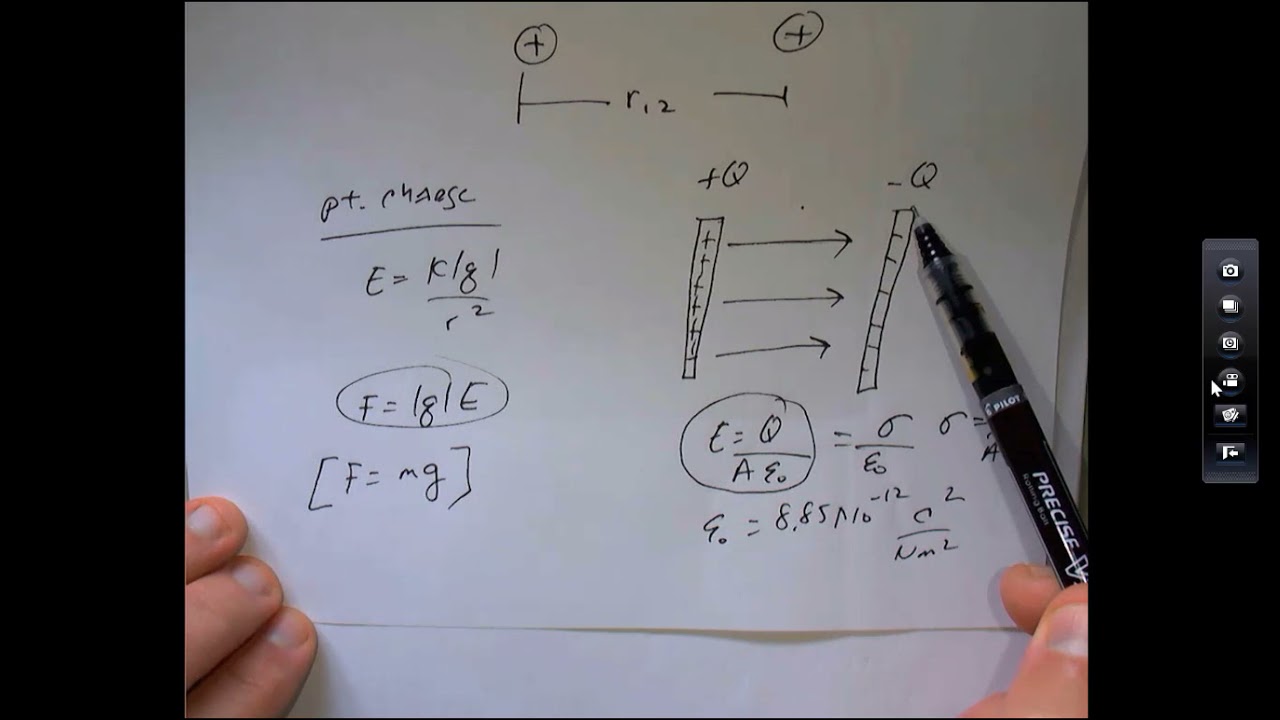 + +
r₁₂
pt. charge
E = K|q|
r²
F = |q|E
[F = mg]
+Q -Q
+ + + + +
E = Q / A ε₀ = σ / ε₀ σ =
A
ε₀ = 8.85 × 10⁻¹² C² / Nm²
PILOT
PRECISE V
Rolling Ball